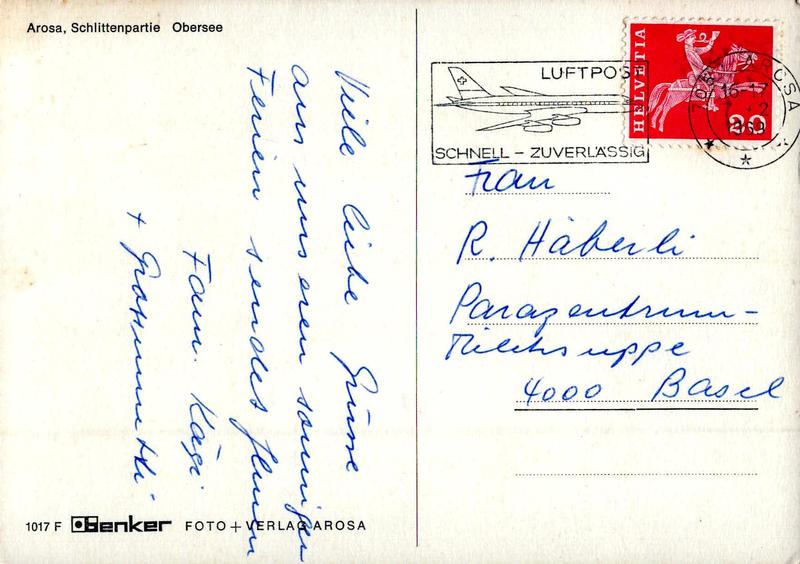 Arosa, Schlittenpartie Obersee
Viele liebe Grüsse
aus unseren sonnigen
Ferien sendet Ihnen
Fam. Kägi
+ Grossmutti
1017 F Benker FOTO + VERLAG AROSA
LUFTPOST
SCHNELL – ZUVERLÄSSIG
HELVETIA
30
AROSA
16-17
1969
Frau
R. Häberli
Parazentrum-
Milchsuppe
4000 Basel